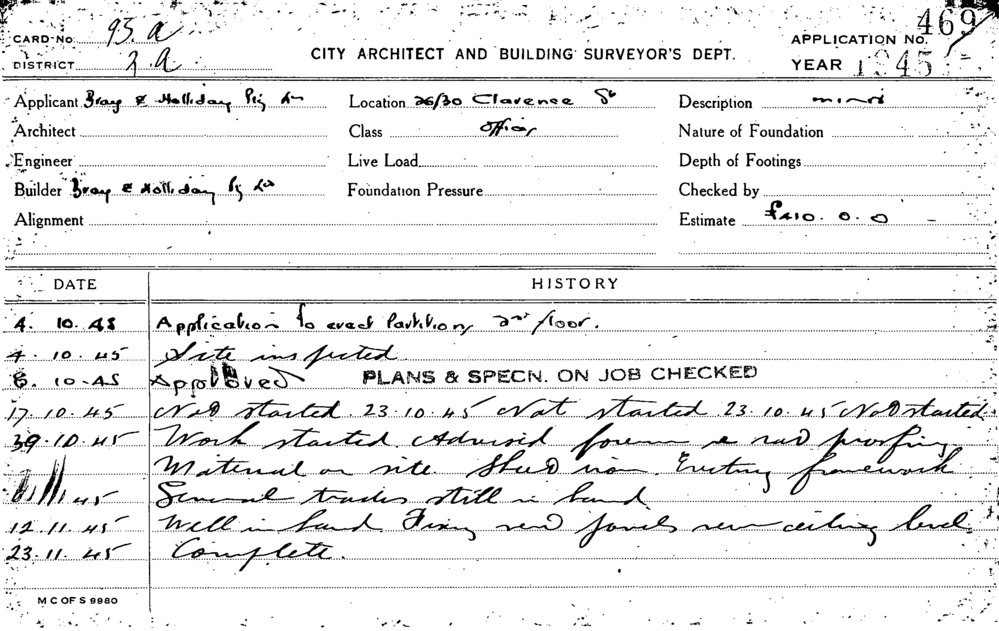 CARD No 93 A
DISTRICT 2 A
CITY ARCHITECT AND BUILDING SURVEYOR'S DEPT.
APPLICATION No. 469
YEAR 1945
Applicant Bray & Holliday Pty Ltd
Location 26/30 Clarence St
Description minor
Architect
Class Offices
Nature of Foundation
Engineer
Live Load
Depth of Footings
Builder Bray & Holliday Pty Ltd
Foundation Pressure
Checked by
Alignment
Estimate £410. 0. 0
DATE HISTORY
4. 10. 45 Application to erect Partitions 2nd floor.
4. 10. 45 Site inspected.
8. 10-45 Approved PLANS & SPECN. ON JOB CHECKED
17. 10. 45 Not started. 23. 10. 45 Not started 23. 10. 45 Not started
10. 45 Work started. Advised foreman re rat proofing
Material on site. Sheed iron. Erecting framework
45 General trades still in hand
12. 11. 45 Well in hand. Fixing panels ceiling level.
23. 11. 45 Complete.
M C OF S 9980